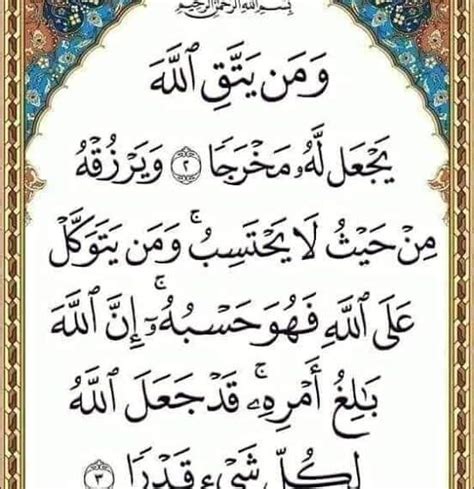 بِسْمِ اللهِ الرَّحْمٰنِ الرَّحِيْمِ
وَمَن يَتَّقِ ٱللَّهَ
يَجْعَل لَّهُۥ مَخْرَجًا ٢ وَيَرْزُقْهُ
مِنْ حَيْثُ لَا يَحْتَسِبُ ۚ وَمَن يَتَوَكَّلْ
عَلَى ٱللَّهِ فَهُوَ حَسْبُهُۥٓ ۚ إِنَّ ٱللَّهَ
بَـٰلِغُ أَمْرِهِۦ ۚ قَدْ جَعَلَ ٱللَّهُ
لِكُلِّ شَىْءٍ قَدْرًا ٣